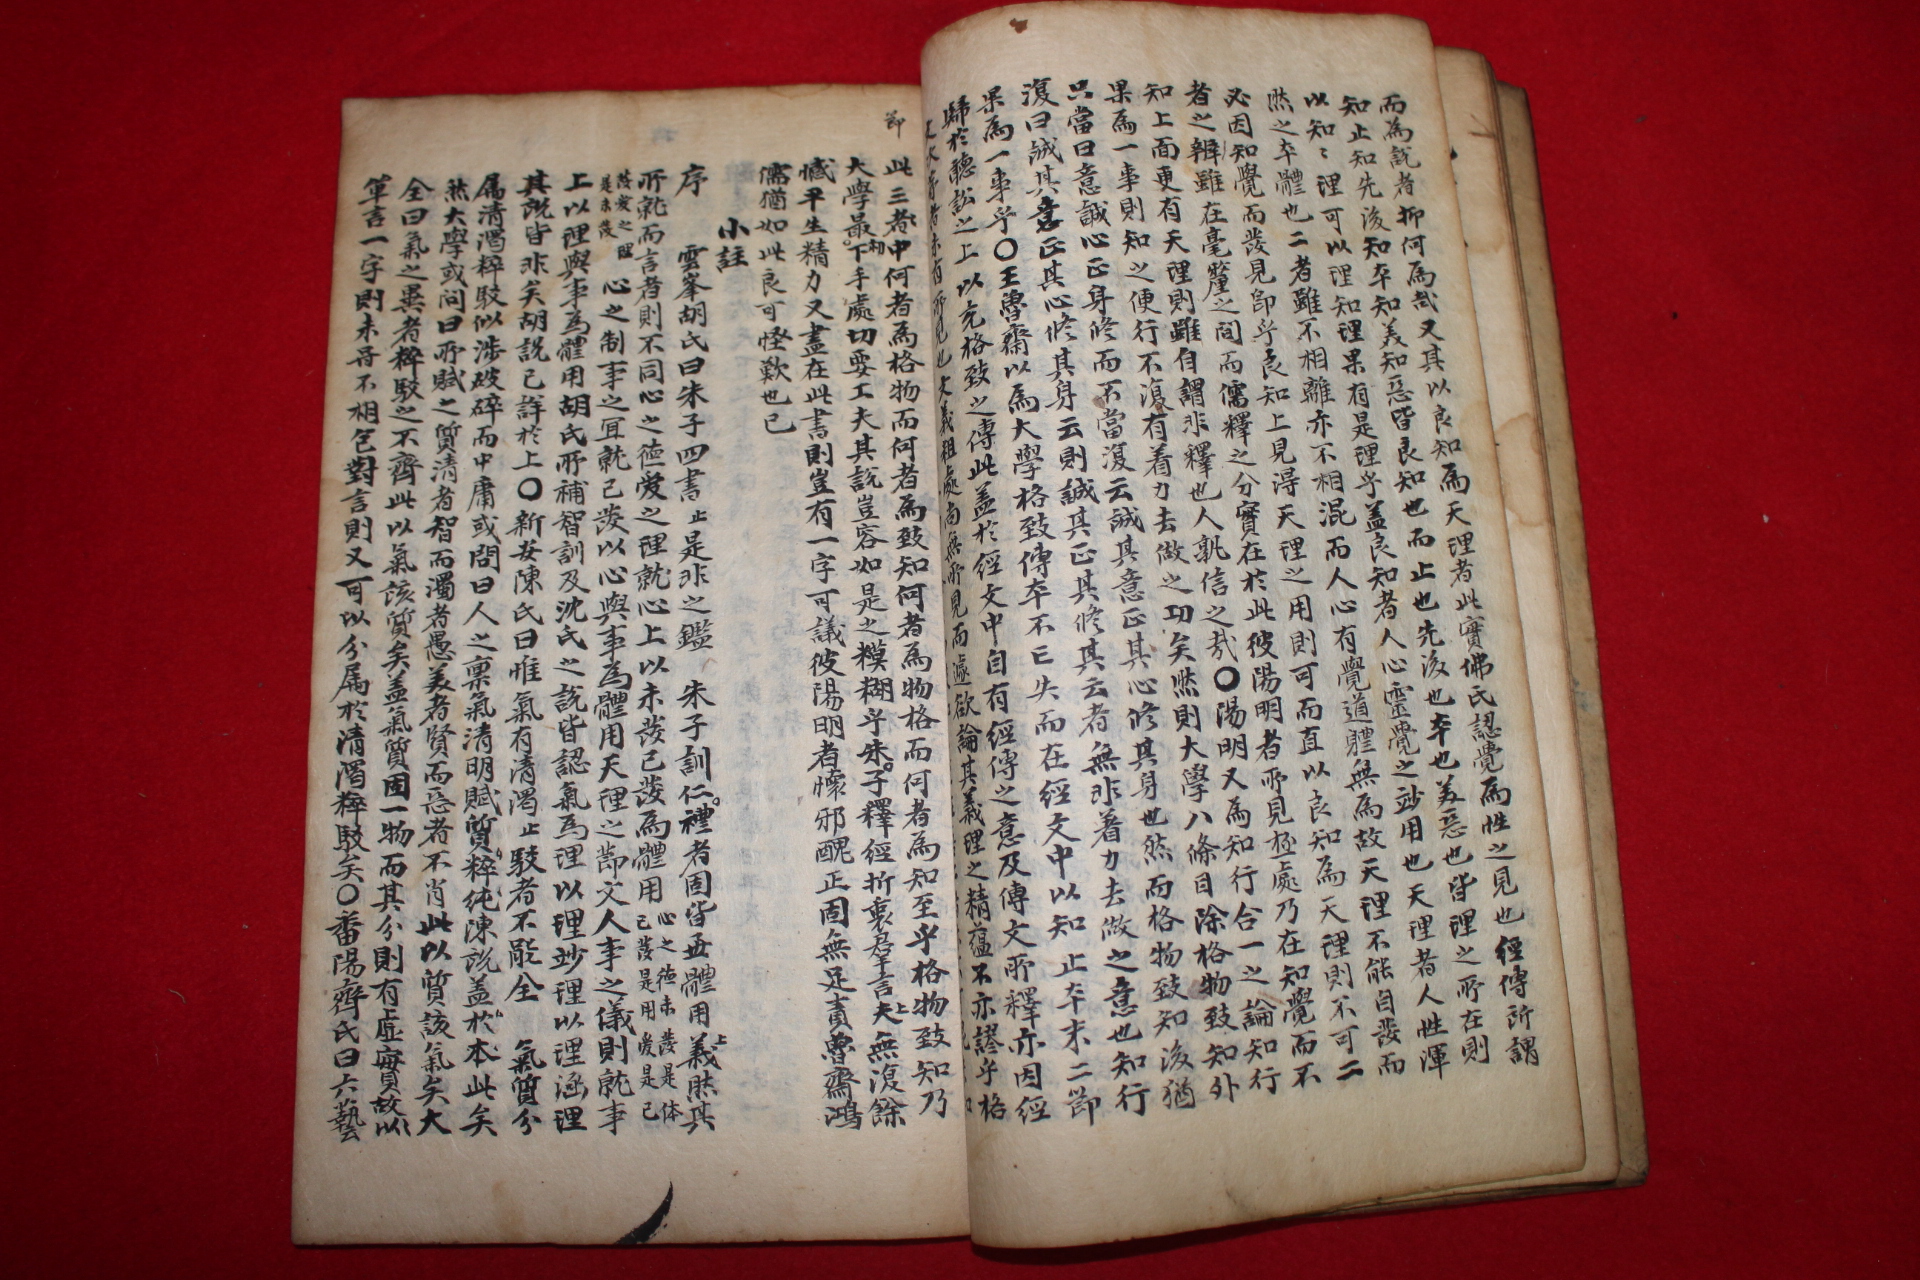 而為說者抑何為哉又其以良知為天理者此實佛氏認覺為性之見也經傳所謂
知止知先後知夲知美知惡皆良知也而止也先後也夲也美惡也皆理之所在則
以知〻理可以理知理果有是理乎盖良知者人心靈覺之玅用也天理者人性渾
然之夲體也二者雖不相離亦不相混而人心有覺道軆無為故天理不能自發而
必因知覺而發見卽乎良知上見淂天理之用則可而直以良知為天理則不可二
者之辨雖在毫釐之间而儒釋之分實在於此彼陽明者所見極處乃在知覺而不
知上面更有天理則雖自謂非釋也人孰信之㢤〇陽明又為知行合一之論知行
果為一事則知之便行不復有着力去做之功矣然則大學八條目除格物致知外
只當曰意誠心正身修而不當復云誠其意正其心修其身也然而格物致知後猶
復曰誠其意正其心修其身云則誠其正其修其云者無非着力去做之意也知行
果為一事乎〇王魯齋以為大學格致傳夲不亡失而在經文中以知止夲末二節
歸於聽訟之上以充格致之傳此盖於經文中自有經傳之意及傳文所釋亦因經
文次第者未有所見也文義粗處尚無所見而遽欲論其義理之精蘊不亦謬乎格
節
此三者中何者為格物而何者為致知何者為物格而何者為知至乎格物致知乃
大學最初下手處切要工夫其說豈容如是之糢糊乎朱子釋經折衷羣言夫無復餘
憾平生精力又盡在此書則豈有一字可議彼陽明者懷邪醜正固無足責魯齋鴻
儒猶如此良可怪歎也已
小註
序 雲峯胡氏曰朱子四書止是非之鑑 朱子訓仁禮者固皆並體用義然其
所就而言者則不同心之德愛之理就心上以未發已發為體用心之德未發是体已發是用愛是已
發愛之理是未發 心之制事之宜就已發以心與事為體用天理之節文人事之儀則就事
上以理與事為體用胡氏所補智訓及沈氏之說皆認氣為理以理玅理以理涵理
其說皆非矣胡說已詳於上〇新安陳氏曰惟氣有清濁止駁者不能全 氣質分
屬清濁粹駁似涉破碎而中庸或問曰人之稟氣清明賦質粹純陳說盖於本此矣
然大學或问曰所賦之質清者智而濁者愚美者賢而惡者不肖此以質該氣矣大
全曰氣之異者粹駁之不齊此以氣該質矣盖氣質固一物而其分則有虛實故以
單言一字則未甞不相包對言則又可以分屬於清濁粹駁矣〇番陽齊氏曰六藝